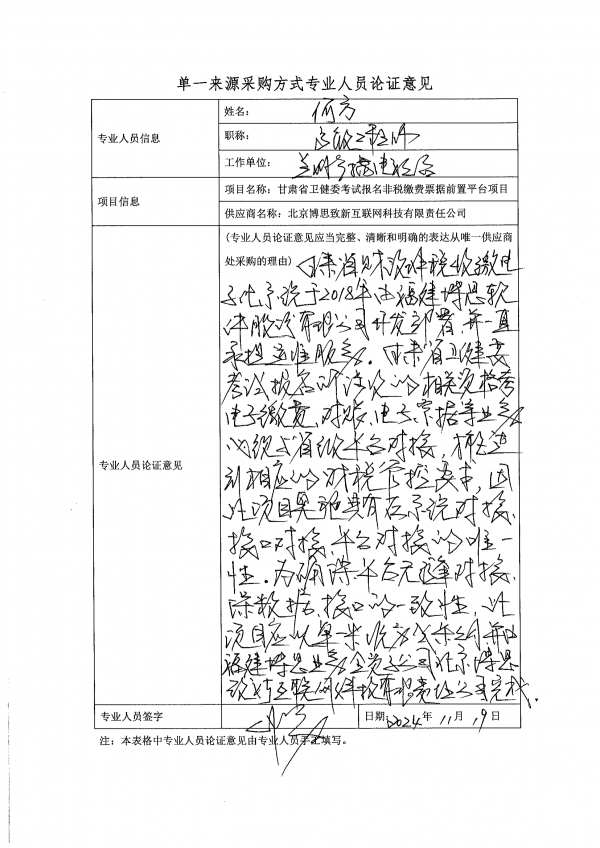 单一来源采购方式专业人员论证意见
专业人员信息
姓名：何方
职称：高级工程师
工作单位：
项目信息
项目名称：甘肃省卫健委考试报名非税缴费票据前置平台项目
供应商名称：北京博思致新互联网科技有限责任公司
专业人员论证意见
(专业人员论证意见应当完整、清晰和明确的表达从唯一供应商
处采购的理由) 甘肃省财政非税收缴电
子化系统于2018年由福建博思软
件股份有限公司开发部署并一直
承担运维服务. 甘肃省卫健委
考试报名所涉及的相关资格考
电子缴费、对账、电子票据等业务
必须与省级平台对接，
到相应的财税管控要求，因
此项目具有在系统对接、
接口对接、平台对接的唯一
性. 为确保平台无缝对接、
保数据、接口的一致性，此
项目应以单一来源方式采购并由
福建博思业务全资子公司北京博思
致新互联网科技有限责任公司完成.
专业人员签字
日期：2024年 11月 19日
注：本表格中专业人员论证意见由专业人员手工填写。